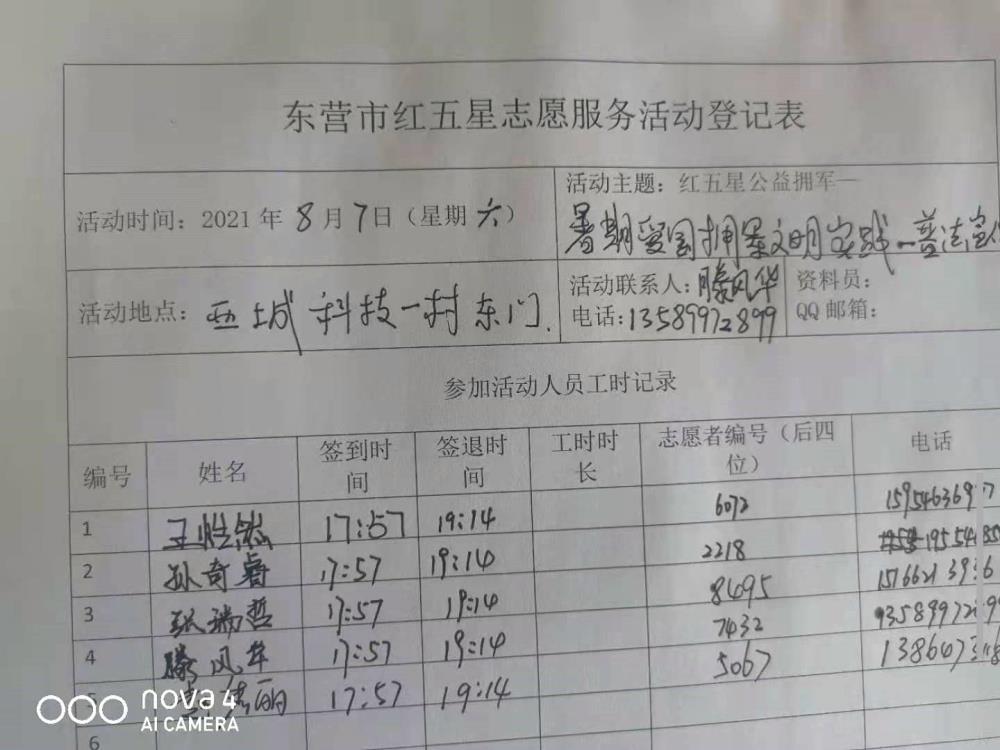 东营市红五星志愿服务活动登记表
活动时间：2021年 8月7日（星期 六）
活动主题：红五星公益拥军—
暑期爱国拥军文明实践—普法宣
活动地点：西城科技一村东门.
活动联系人：滕风华
电话:13589972899
资料员：
QQ邮箱：
参加活动人员工时记录
编号 姓名 签到时间 签退时间 工时时长 志愿者编号（后四位） 电话
1 王皓然 17:57 19:14 6072
2 孙奇睿 17:57 19:14 2218
3 张瑞哲 17:57 19:14 8495
4 滕风华 17:57 19:14 7432
5 17:57 19:14 5067
6
nova 4
AI CAMERA